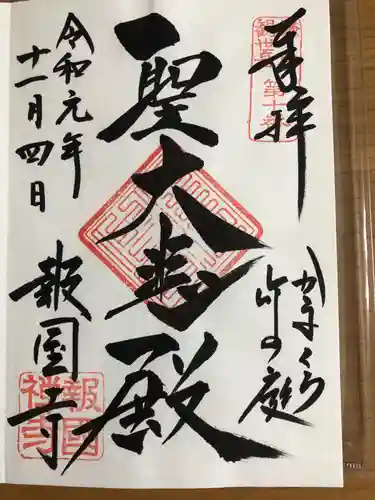 奉拝
かまくら
竹の庭
聖大悲殿
令和元年
十一月四日
報国寺
報國
禅寺